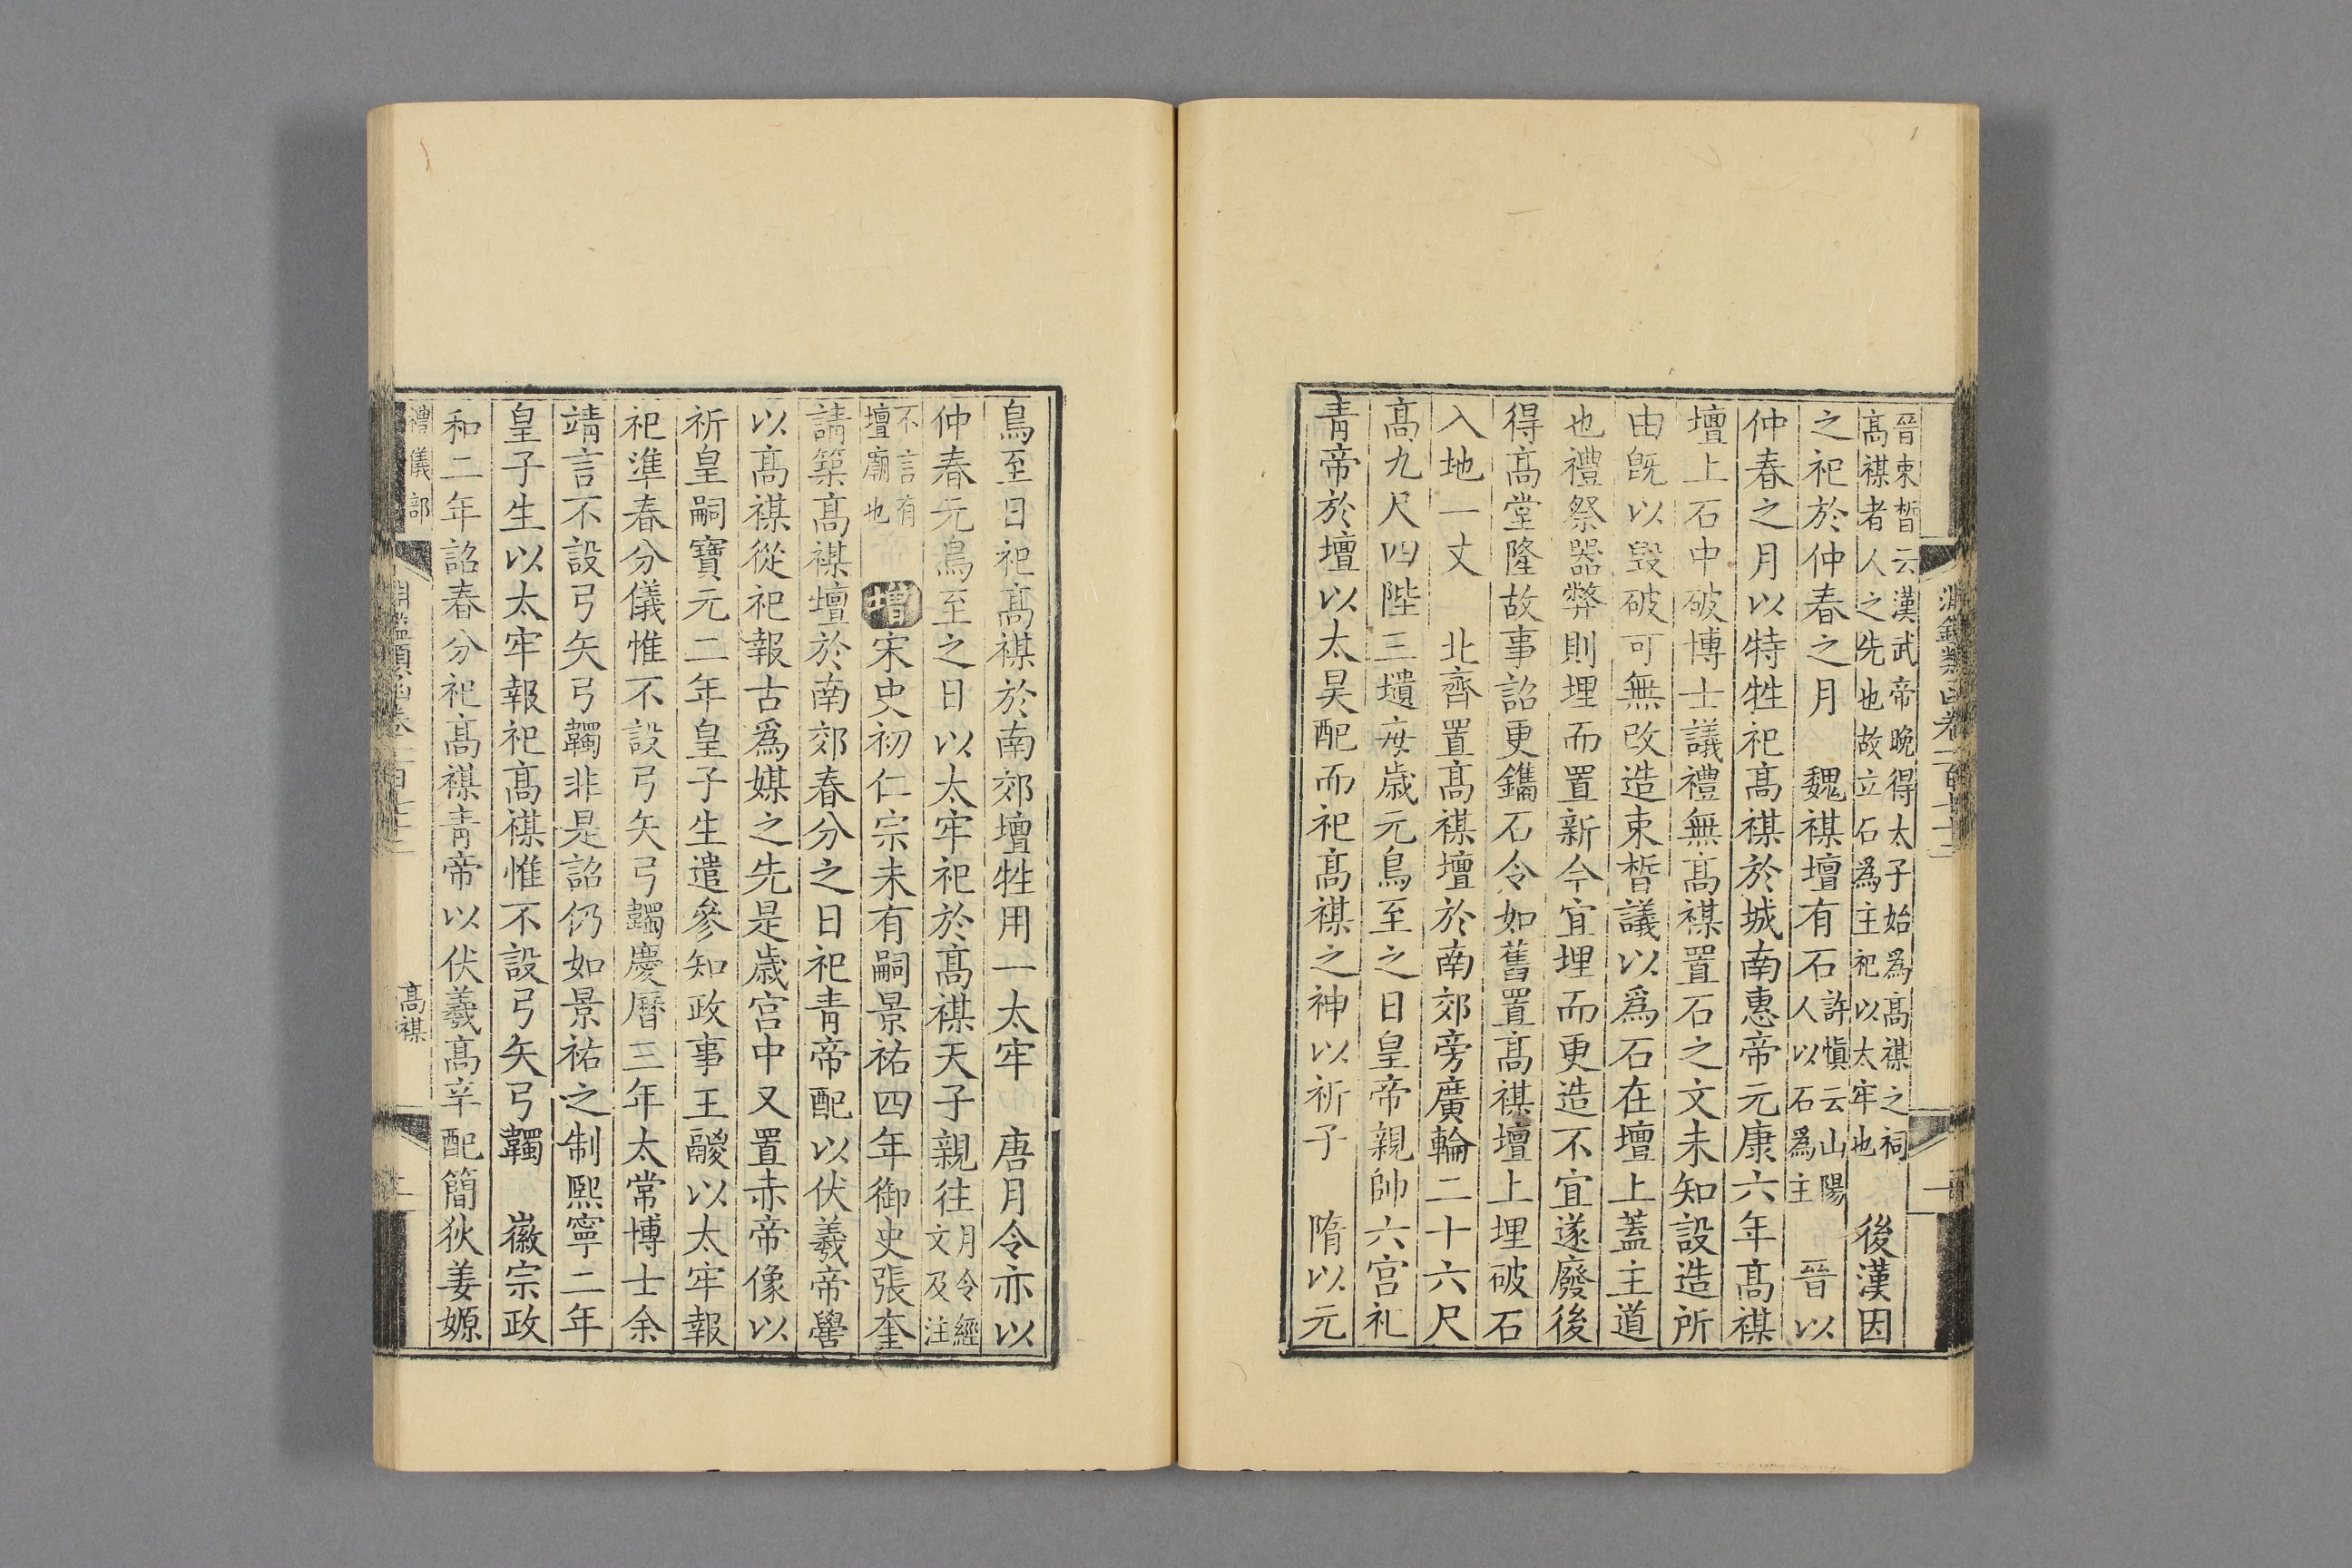 晉束晳云漢武帝晚得太子始爲高禖之祠
高禖者人之先也故立石爲主祀以太牢也
後漢因
之祀於仲春之月　魏禖壇有石
許愼云山陽
人以石爲主
晉以
仲春之月以特牲祀高禖於城南惠帝元康六年高禖
壇上石中破博士議禮無高禖置石之文未知設造所
由旣以毁破可無改造束晳議以爲石在壇上蓋主道
也禮祭器弊則埋而置新今宜埋而更造不宜遂廢後
得高堂隆故事詔更鐫石令如舊置高禖壇上埋破石
入地一丈　北齊置高禖壇於南郊旁廣輪二十六尺
高九尺四陛三壝每歲元鳥至之日皇帝親帥六宫礼
靑帝於壇以太昊配而祀高禖之神以祈子　隋以元
鳥至日祀高禖於南郊壇牲用一太牢　唐月令亦以
仲春元鳥至之日以太牢祀於高禖天子親往
月令經
文及注
不言有
壇廟也
增宋史初仁宗未有嗣景祐四年御史張奎
請築高禖壇於南郊春分之日祀靑帝配以伏羲帝嚳
以高禖從祀報古爲媒之先是歲宫中又置赤帝像以
祈皇嗣寶元二年皇子生遣參知政事王鬷以太牢報
祀準春分儀惟不設弓矢弓韣慶曆三年太常博士余
靖言不設弓矢弓韣非是詔仍如景祐之制熙寧二年
皇子生以太牢報祀高禖惟不設弓矢弓韣　徽宗政
和二年詔春分祀高禖靑帝以伏羲高辛配簡狄姜嫄
禮儀部
高禖